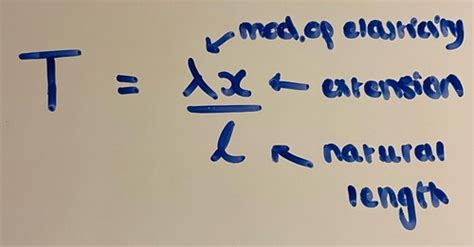 mod. of elasticity
T = λx/l
extension
natural
length